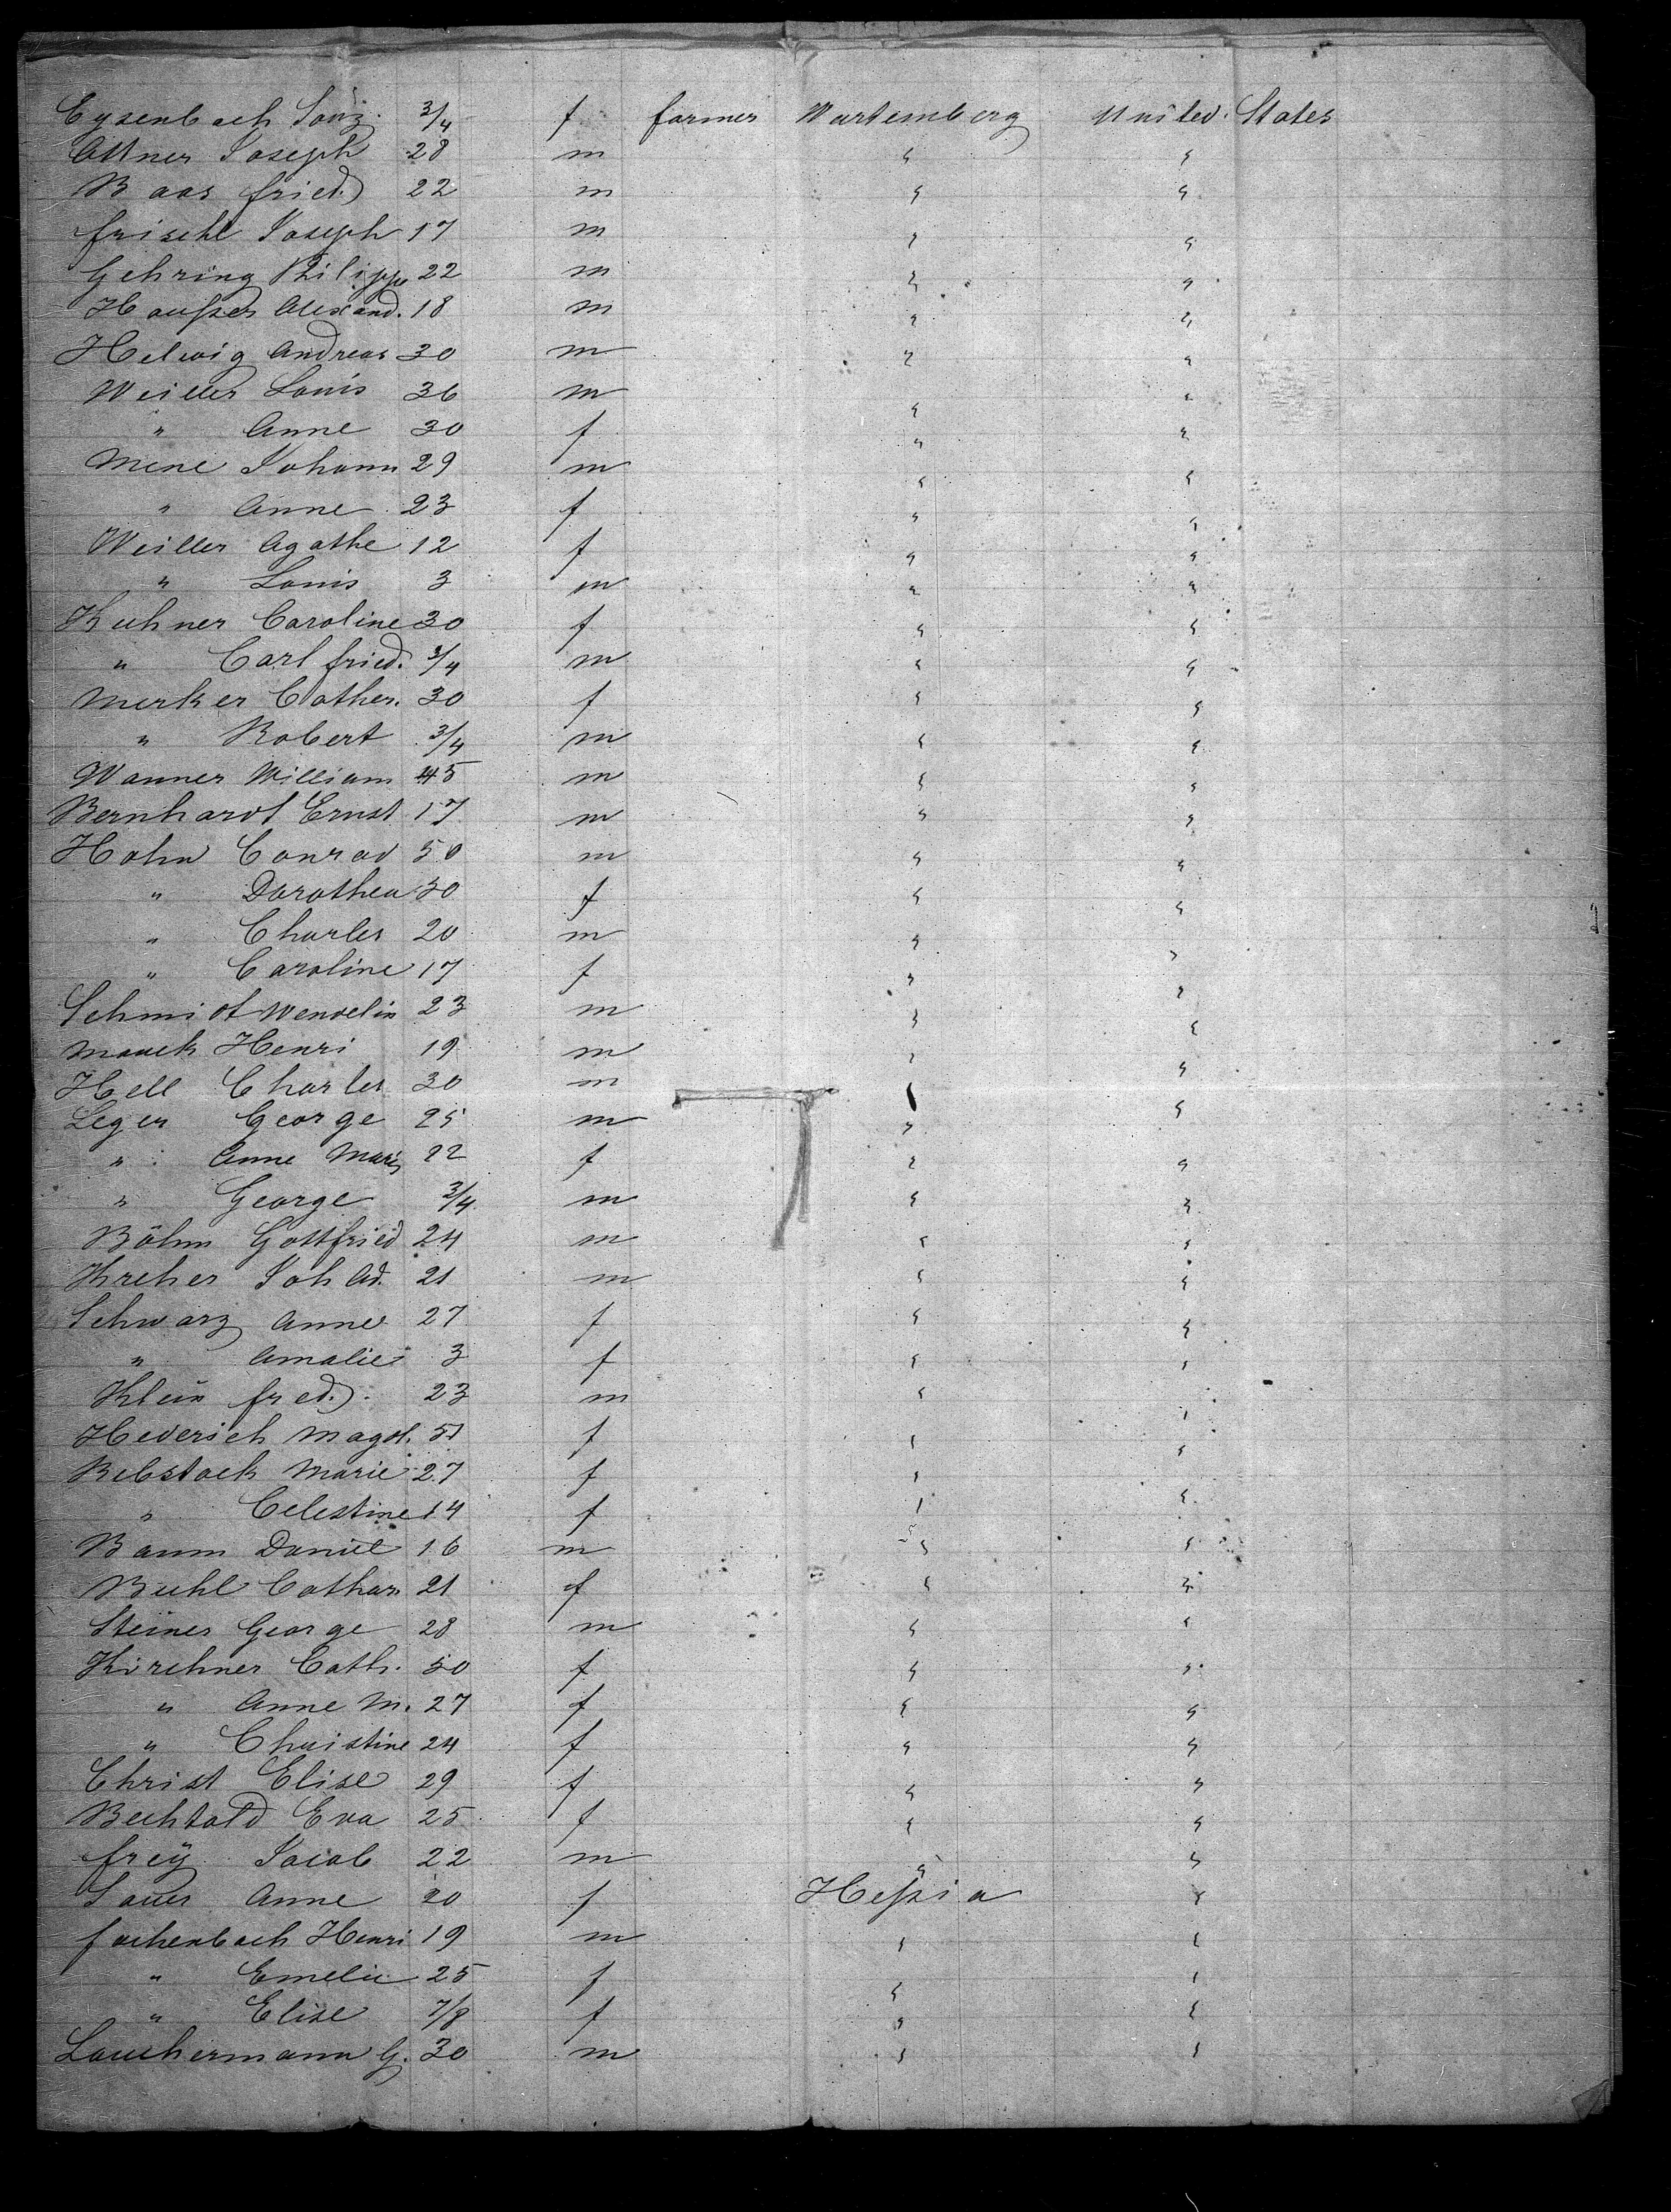 Eysenbach 3/4 f farmer Wurtemberg United States
Attner Joseph 28 m " "
Baas fried. 22 m " "
frischl Joseph 17 m " "
Gehring Philippe 22 m " "
Haufser Alexand. 18 m " "
Helwig Andreas 30 m " "
Weiller Louis 36 m " "
" Anne 30 f " "
Mene Johann 29 m " "
" Anne 23 f " "
Weiller Agathe 12 f " "
" Louis 3 m " "
Kuhner Caroline 30 f " "
" Carl fried. 3/4 m " "
Merker Cather. 30 f " "
" Robert 3/4 m " "
Wanner William 45 m " "
Bernhardt Ernst 17 m " "
Hahn Conrad 50 m " "
" Dorothea 50 f " "
" Charles 20 m " "
" Caroline 17 f " "
Schmidt Wendelin 23 m " "
Mauck Henri 19 m " "
Hell Charles 30 m " "
Leger George 25 m " "
" Anne Marie 22 f " "
" George 3/4 m " "
Böhm Gottfried 24 m " "
Kreher Joh Ad. 21 m " "
Schwarz Anne 27 f " "
" Amalie 3 f " "
Klein fred. 23 m " "
Hederich Magd. 51 f " "
Rebstock Marie 27 f " "
" Celestine 14 f " "
Baum Daniel 16 m " "
Buhl Cathar 21 f " "
Steiner George 28 m " "
Kirchner Cath. 50 f " "
" Anne M. 27 f " "
" Christine 24 f " "
Christ Elise 29 f " "
Bechtold Eva 25 f " "
freÿ Jacob 22 m " "
Sauer Anne 20 f Hefsia "
fachenbach Henri 19 m " "
" Emelie 25 f " "
" Elise 7/8 f " "
Lauchermann G. 30 m " "